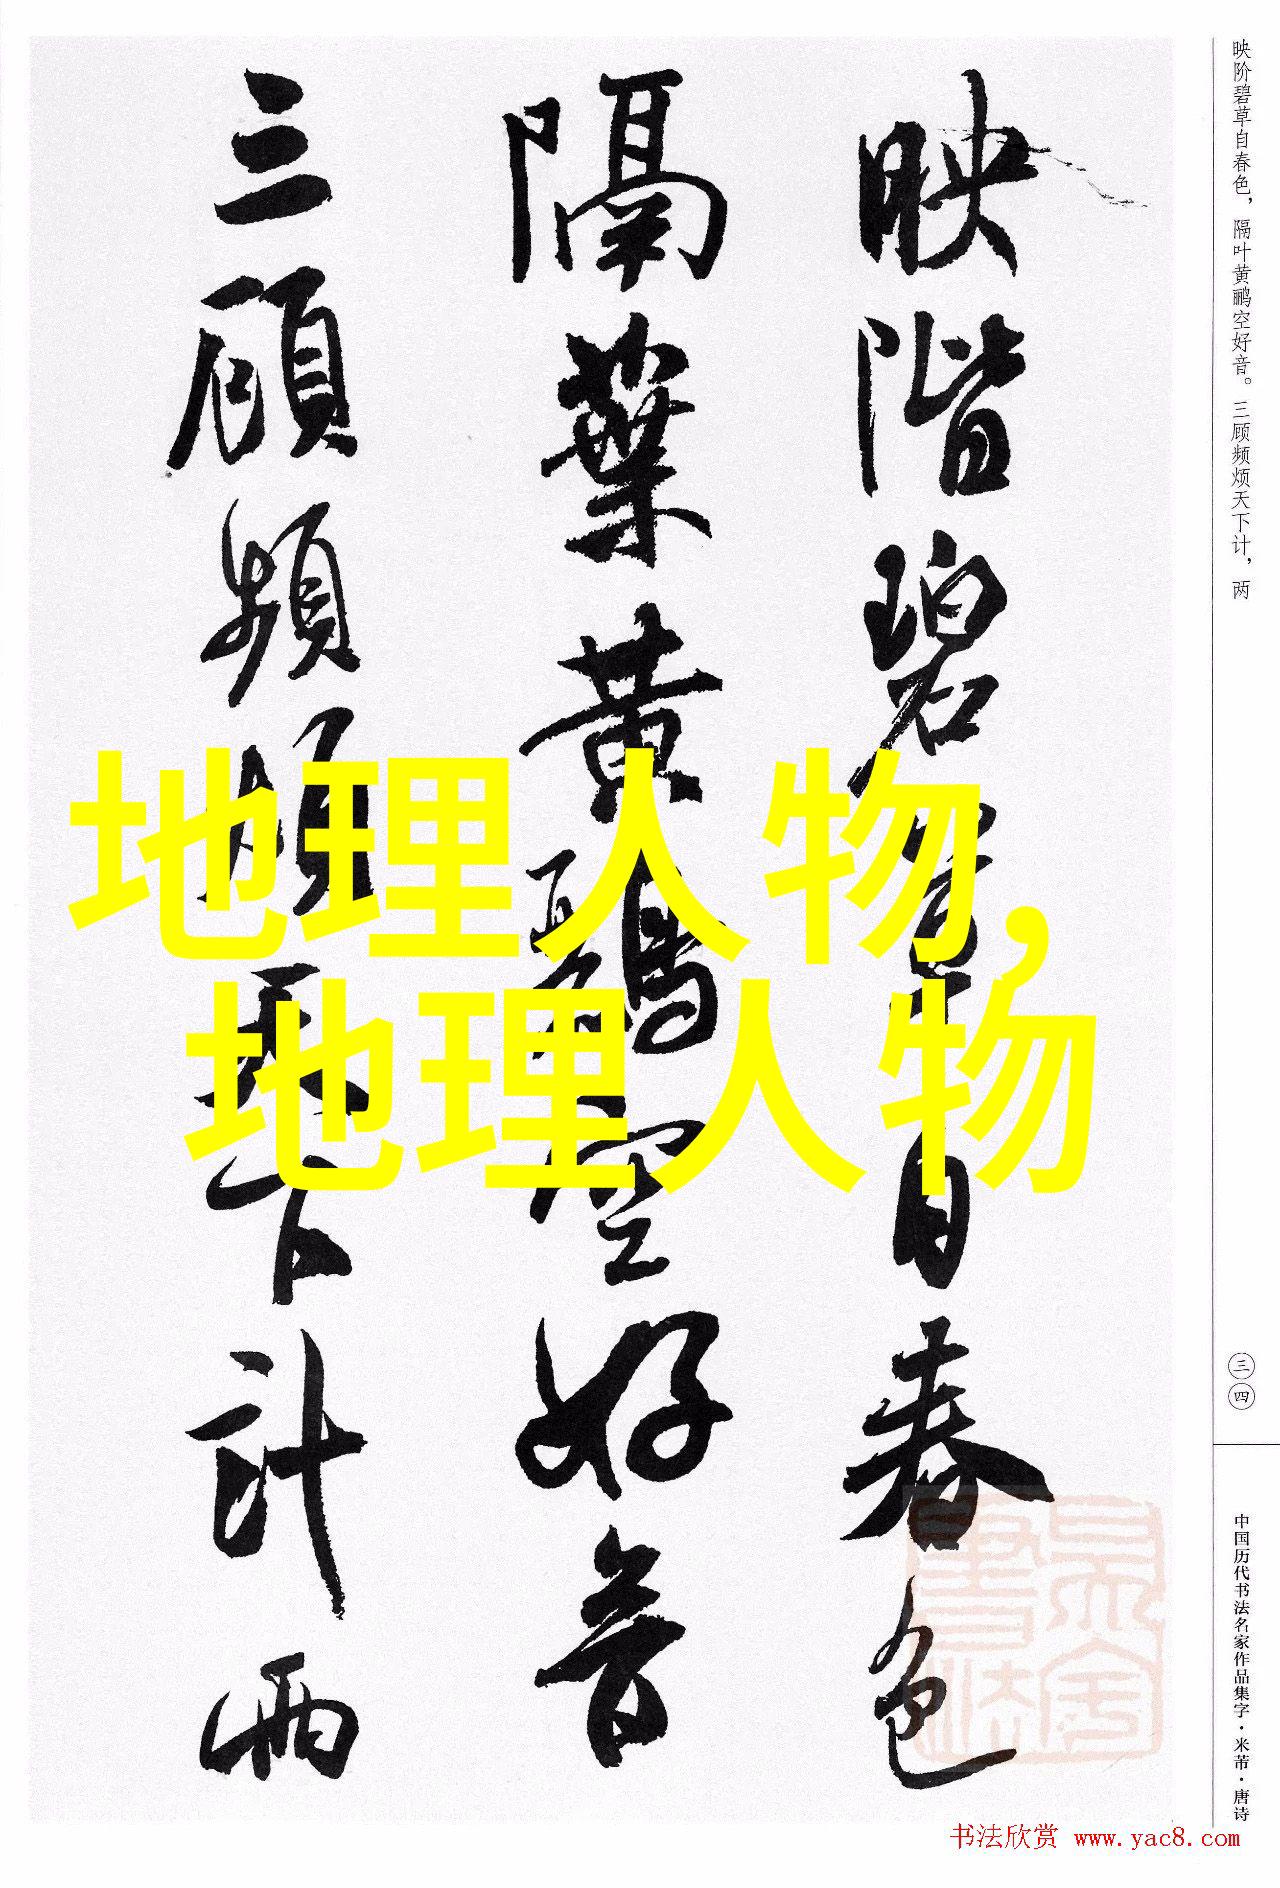 映階碧草自春色
隔葉黄鸝空好音
三顧頻煩天下計兩
地理人物,
地理人物
映阶碧草自春色，隔叶黄鹂空好音。三顾频烦天下计，两
三四
中国历代书法名家作品集字·米芾·唐诗
书法欣赏 www.yac8.com